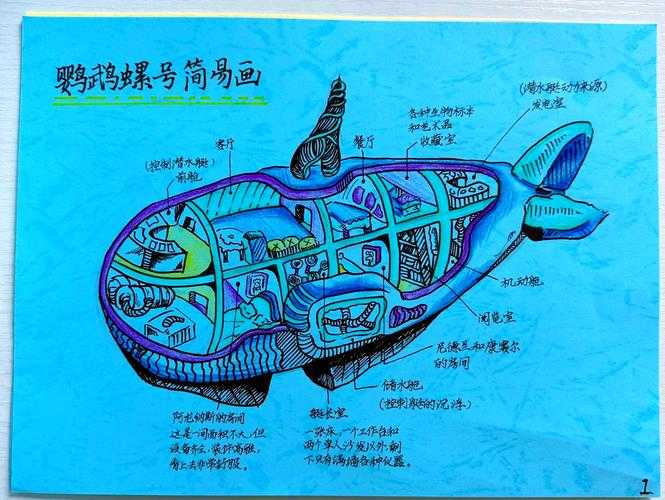 鹦鹉螺号简易画
(潜水艇动力来源)
发电室
各种生物标本
和艺术品
收藏室
客厅
餐厅
(控制潜水艇)
前舱
机动舱
阅览室
尼德兰和康塞尔
的房间
储水舱
(控制艇的沉浮)
阿龙纳斯的房间
这是一间面积不大,但
设备齐全,装饰高雅,
看上去非常舒服。
艇长室
一张床,一个工作台和
两个单人沙发以外,剩
下只有满墙各种仪器。
1